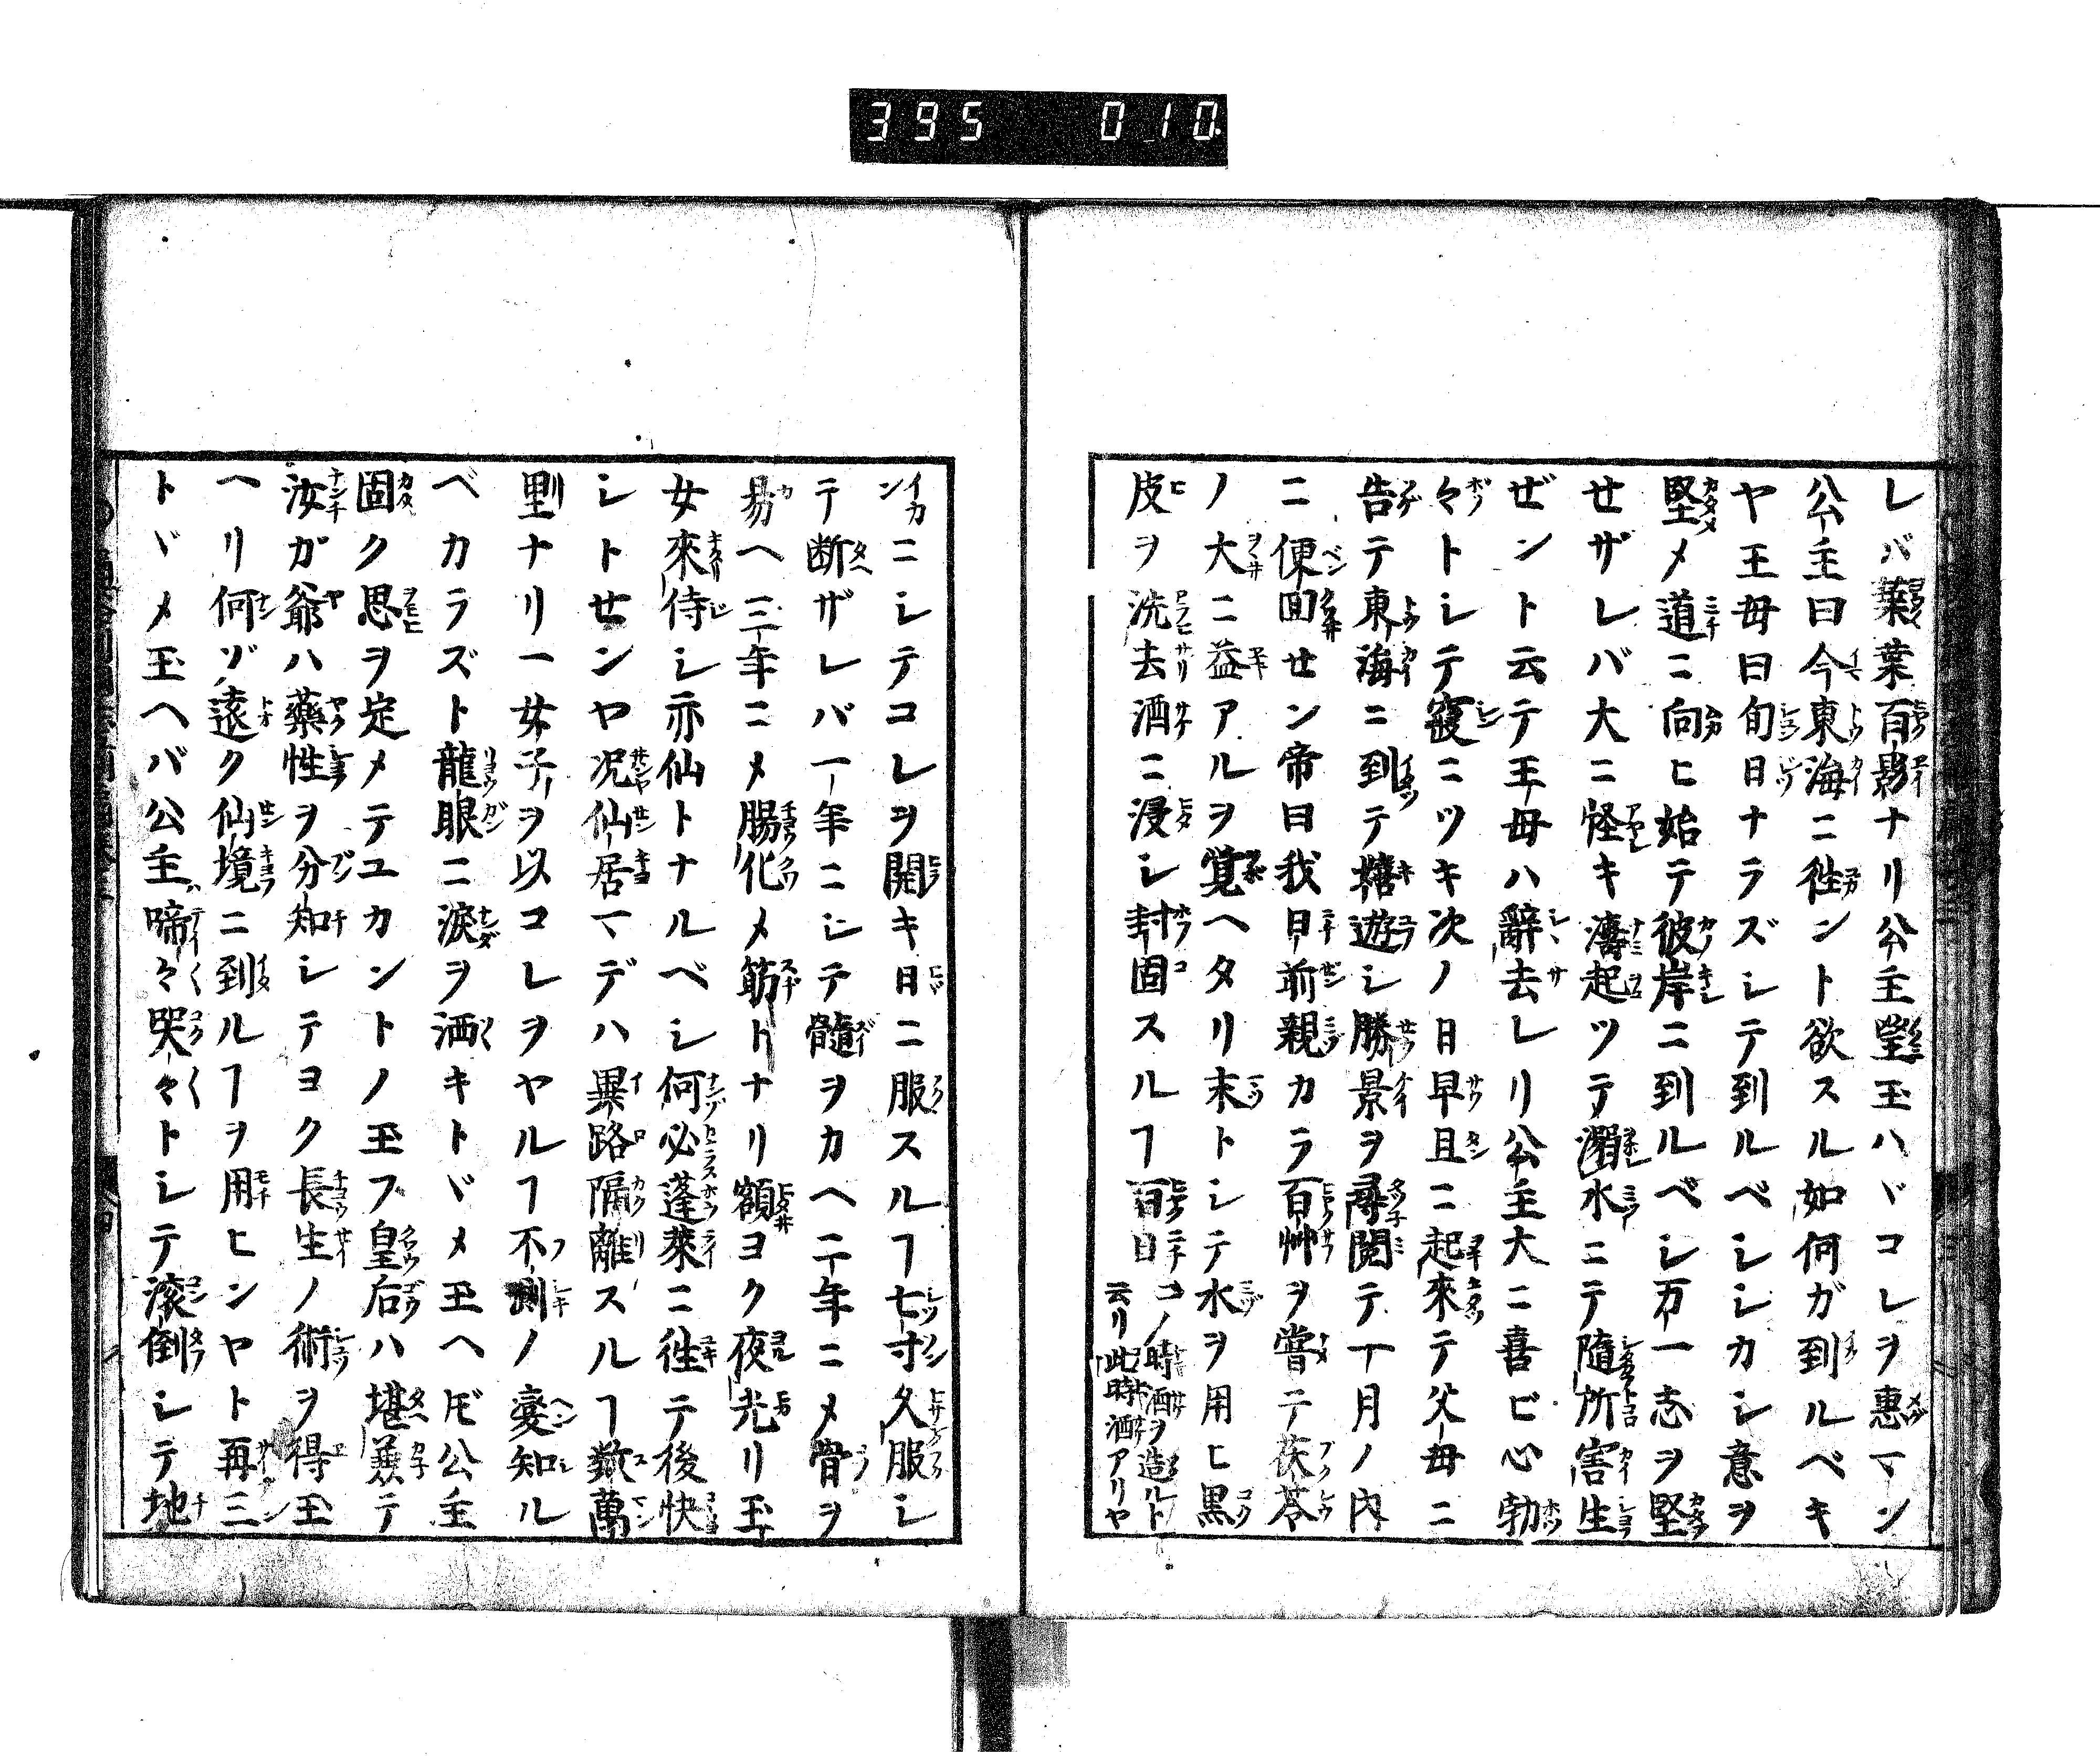 395 010
レバ葉葉百影ナリ公主望玉ハヾコレヲ惠マン
公主曰今東海ニ徃ント欲スル如何ガ到ルベキ
ヤ王母曰旬日ナラズシテ到ルベシシカシ意ヲ
堅メ道ニ向ヒ始テ彼岸ニ到ルベシ万一志ヲ堅
セザレバ大ニ怪キ濤起ツテ溺水ニテ隨所害生
ゼント云テ王母ハ辭去レリ公主大ニ喜ビ心勃
々トシテ寢ニツキ次ノ日早且ニ起來テ父母ニ
告テ東海ニ到テ嬉遊シ勝景ヲ尋閲テ一月ノ內
ニ便囬せン帝曰我日前親カラ百艸ヲ嘗テ茯苓
ノ大ニ益アルヲ覚ヘタリ末トシテ水ヲ用ヒ黒
皮ヲ洗去酒ニ浸シ封固スルヿ百日コノ時酒ヲ造ルト云リ此時酒アリヤ
イカンニシテコレヲ開キ日ニ服スルヿ七寸久服シ
テ断ザレバ一年ニシテ髓ヲカヘ二年ニメ骨ヲ
易ヘ三年ニメ腸化メ筋トナリ額ヨク夜光リ玉
女來侍シ亦仙トナルベシ何必蓬萊ニ徃テ後快
シトせンヤ况仙居マデハ異路隔離スルヿ数萬
里ナリ一女子ヲ以コレヲヤルヿ不測ノ変知ル
ベカラズト龍眼ニ淚ヲ洒キトヾメ玉ヘ𪜈公主
固ク思ヲ定メテユカントノ玉フ皇后ハ堪兼テ
汝ガ爺ハ藥性ヲ分知シテヨク長生ノ術ヲ得玉
ヘリ何ゾ遠ク仙境ニ到ルヿヲ用ヒンヤト再三
トヾメ玉ヘバ公主啼々哭々トシテ滾倒シテ地